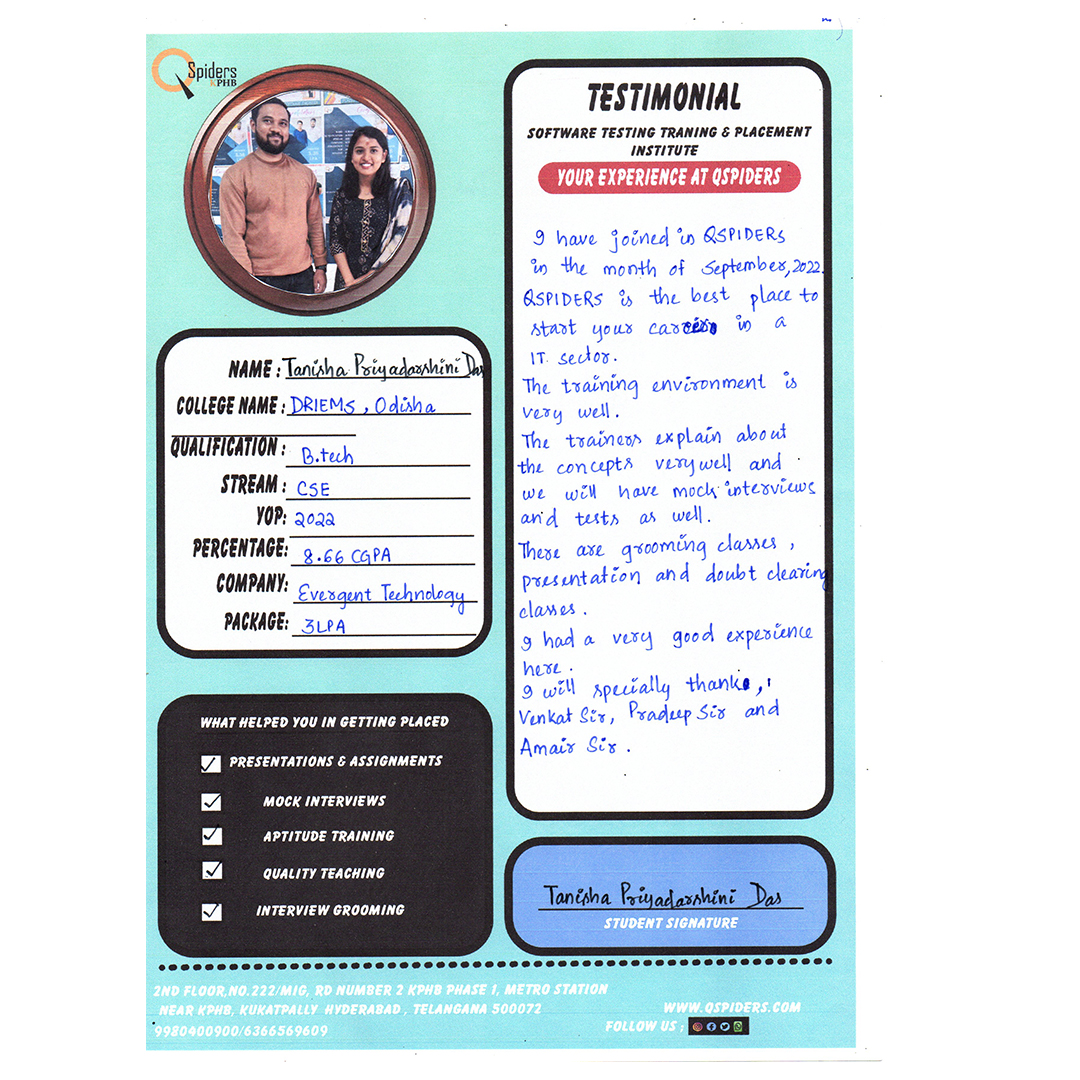 QSpiders
KPHB
TESTIMONIAL
SOFTWARE TESTING TRANING & PLACEMENT
INSTITUTE
YOUR EXPERIENCE AT QSPIDERS
I have joined in QSPIDERs
in the month of September, 2022.
QSPIDERS is the best place to
start your career in a
IT sector.
The training environment is
very well.
The trainers explain about
the concepts very well and
we will have mock interviews
and tests as well.
There are grooming classes,
presentation and doubt clearing
classes.
I had a very good experience
here.
I will specially thank,
Venkat Sir, Pradeep Sir and
Amair Sir.
NAME : Tanisha Priyadarshini Das
COLLEGE NAME : DRIEMS, Odisha
QUALIFICATION : B.tech
STREAM : CSE
YOP: 2022
PERCENTAGE: 8.66 CGPA
COMPANY: Evergent Technology
PACKAGE: 3LPA
WHAT HELPED YOU IN GETTING PLACED
PRESENTATIONS & ASSIGNMENTS
MOCK INTERVIEWS
APTITUDE TRAINING
QUALITY TEACHING
INTERVIEW GROOMING
Tanisha Priyadarshini Das
STUDENT SIGNATURE
2ND FLOOR,NO.222/MIG, RD NUMBER 2 KPHB PHASE 1, METRO STATION
NEAR KPHB, KUKATPALLY HYDERABAD , TELANGANA 500072
9980400900/6366569609
WWW.QSPIDERS.COM
FOLLOW US ;